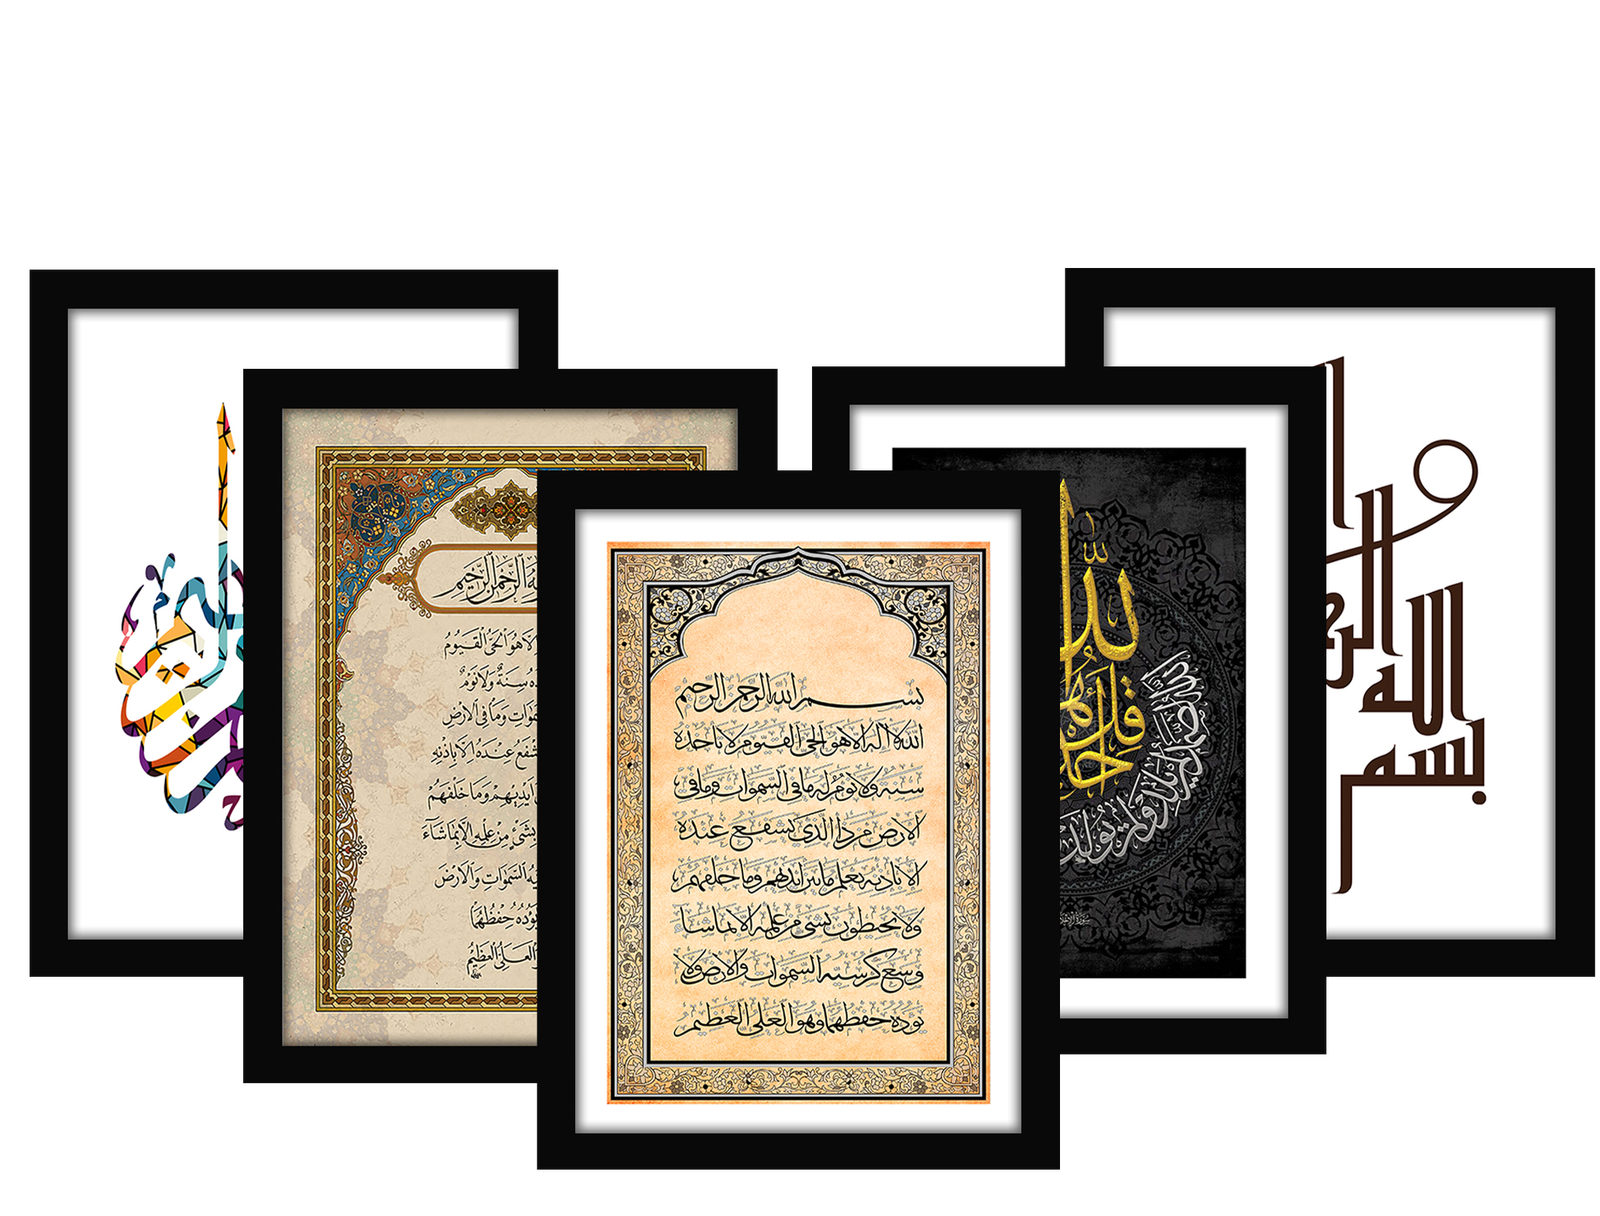 بسم الله الرحمن الرحيم
الله لا اله الا هو الحي القيوم لا تاخذه
سنة ولا نوم له ما في السموات وما في
الارض من ذا الذي يشفع عنده
الا باذنه يعلم ما بين ايديهم وما خلفهم
ولا يحيطون بشيء من علمه الا بما شاء
وسع كرسيه السموات والارض ولا
يوده حفظهما وهو العلي العظيم
ٱلرَّحْمٰنِ ٱلرَّحِيمِ
هُوَ الْحَيُّ الْقَيُّومُ
سِنَةٌ وَلَا نَوْمٌ
وَمَا فِي الْأَرْضِ
عِنْدَهُ إِلَّا بِإِذْنِهِ
أَيْدِيهِمْ وَمَا خَلْفَهُمْ
بِشَيْءٍ مِنْ عِلْمِهِ إِلَّا بِمَا شَاءَ
السَّمَوَاتِ وَالْأَرْضَ
حِفْظُهُمَا
الْعَلِيُّ الْعَظِيمُ
قل
الله
الصمد لم يلد ولم يولد
بسم
الله